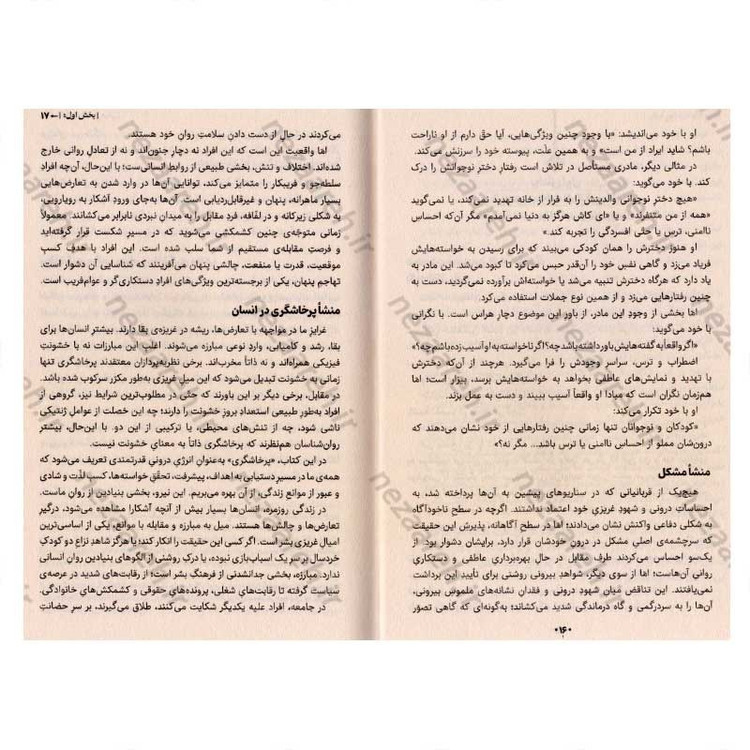 او با خود می‌اندیشد: «با وجود چنین ویژگی‌هایی، آیا حق دارم از او ناراحت
باشم؟ شاید ایراد از من است» و به همین علّت، پیوسته خود را سرزنش می‌کند.
در مثالی دیگر، مادری مستأصل در تلاش است رفتار دختر نوجوانش را درک
کند. با خود می‌گوید:
«هیچ دختر نوجوانی والدینش را به فرار از خانه تهدید نمی‌کند، یا نمی‌گوید
«همه از من متنفرند» و یا «ای کاش هرگز به دنیا نمی‌آمدم» مگر آن‌که احساس
ناامنی، ترس یا حتّی افسردگی را تجربه کند.»
او هنوز دخترش را همان کودکی می‌بیند که برای رسیدن به خواسته‌هایش
فریاد می‌زد و گاهی نفسِ خود را آن‌قدر حبس می‌کرد تا کبود می‌شد. این مادر به
یاد دارد که هرگاه دخترش تنبیه می‌شد یا خواسته‌اش برآورده نمی‌گردید، دست به
چنین رفتارهایی می‌زد و از همین نوع جملات استفاده می‌کرد.
امّا بخشی از وجود این مادر، از باورِ این موضوع دچار هراس است. با نگرانی
با خود می‌گوید:
«اگر واقعاً به گفته‌هایش باور داشته باشد چه؟ اگر ناخواسته به او آسیب زده باشم چه؟»
اضطراب و ترس، سراسر وجودش را فرا می‌گیرد. هرچند از آن‌که دخترش
با تهدید و نمایش‌های عاطفی بخواهد به خواسته‌هایش برسد، بیزار است؛ امّا
هم‌زمان نگران است که مبادا او واقعاً آسیب ببیند و دست به عمل بزند.
او با خود تکرار می‌کند:
«کودکان و نوجوانان تنها زمانی چنین رفتارهایی از خود نشان می‌دهند که
درون‌شان مملو از احساس ناامنی یا ترس باشد... مگر نه؟»
منشأ مشکل
هیچ‌یک از قربانیانی که در سناریوهای پیشین به آن‌ها پرداخته شد، به
احساسات درونی و شهودِ غریزیِ خود اعتماد نداشتند. اگرچه در سطح ناخودآگاه
به شکلی دفاعی واکنش نشان می‌دادند؛ امّا در سطح آگاهانه، پذیرش این حقیقت
که سرچشمه‌ی اصلی مشکل در درون خودشان قرار دارد، برایشان دشوار بود. از
یک‌سو احساس می‌کردند طرف مقابل در حال بهره‌برداریِ عاطفی و دستکاریِ
روانی آن‌هاست؛ امّا از سوی دیگر، شواهدِ بیرونی روشنی برای تأیید این برداشت
نمی‌یافتند. این تناقض میان شهود درونی و فقدان نشانه‌های ملموس بیرونی،
آن‌ها را به سردرگمی و گاه درماندگی شدید می‌کشاند؛ به‌گونه‌ای که گاهی تصوّر
۱۶
بخش اول: | ۱۷
می‌کردند در حال از دست دادن سلامتِ روان خود هستند.
امّا واقعیت این است که این افراد نه دچار جنون‌اند و نه از تعادل روانی خارج
شده‌اند. اختلاف و تنش، بخشی طبیعی از روابط انسانی‌ست؛ با این‌حال، آن‌چه افراد
سلطه‌جو و فریبکار را متمایز می‌کند، توانایی آن‌ها در وارد شدن به تعارض‌هایی
بسیار ماهرانه، پنهان و غیرقابل‌ردیابی است. آن‌ها به‌جای ورودِ آشکار به رویارویی،
به شکلی زیرکانه و در لفافه، فردِ مقابل را به میدانِ نبردی نابرابر می‌کشانند. معمولاً
زمانی متوجّه‌ی چنین کشمکشی می‌شوید که در مسیر شکست قرار گرفته‌اید
و فرصتِ مقابله‌ی مستقیم از شما سلب شده است. این افراد با هدف کسبِ
موقعیت، قدرت یا منفعت، چالشی پنهان می‌آفرینند که شناسایی آن دشوار است.
تهاجم پنهان، یکی از برجسته‌ترین ویژگی‌های افرادِ دستکاری‌گر و عوام‌فریب است.
منشأ پرخاشگری در انسان
غرایز ما در مواجهه با تعارض‌ها، ریشه در غریزه‌ی بقا دارند. بیشتر انسان‌ها برای
بقا، رشد و کامیابی، وارد نوعی مبارزه می‌شوند. اغلبِ این مبارزات نه با خشونتِ
فیزیکی همراه‌اند و نه ذاتاً مخرب‌اند. برخی نظریه‌پردازان معتقدند پرخاشگری تنها
زمانی به خشونت تبدیل می‌شود که این میلِ غریزی به‌طور مکرر سرکوب شده باشد.
در مقابل، برخی دیگر بر این باورند که حتّی در مطلوب‌ترین شرایط نیز، گروهی از
افراد به‌طور طبیعی استعدادِ بروزِ خشونت را دارند؛ چه این خصلت از عوامل ژنتیکی
ناشی شود، چه از تنش‌های محیطی، یا ترکیبی از این دو. با این‌حال، بیشتر
روان‌شناسان هم‌نظرند که پرخاشگری ذاتاً به معنای خشونت نیست.
در این کتاب، «پرخاشگری» به‌عنوان انرژیِ درونیِ قدرتمندی تعریف می‌شود که
همه‌ی ما در مسیر دستیابی به اهداف، پیشرفت، تحقّقِ خواسته‌ها، کسب لذّت و شادی
و عبور از موانع زندگی، از آن بهره می‌بریم. این نیرو، بخشی بنیادین از روان ماست.
در زندگی روزمره، انسان‌ها بسیار بیش از آنچه آشکارا مشاهده می‌شود، درگیر
تعارض‌ها و چالش‌ها هستند. میل به مبارزه و مقابله با موانع، یکی از اساسی‌ترین
امیال غریزی بشر است. اگر کسی این حقیقت را انکار کند؛ یا هرگز شاهد نزاع دو کودکِ
خردسال بر سر یک اسباب‌بازی نبوده، یا درکِ روشنی از الگوهای بنیادین روانِ انسانی
ندارد. مبارزه، بخشی جدانشدنی از فرهنگِ بشر است؛ از رقابت‌های شدید در عرصه‌ی
سیاست گرفته تا رقابت‌های شغلی، پرونده‌های حقوقی و کشمکش‌های خانوادگی.
در جامعه، افراد علیه یکدیگر شکایت می‌کنند، طلاق می‌گیرند، بر سرِ حضانتِ
nezaareh.ir